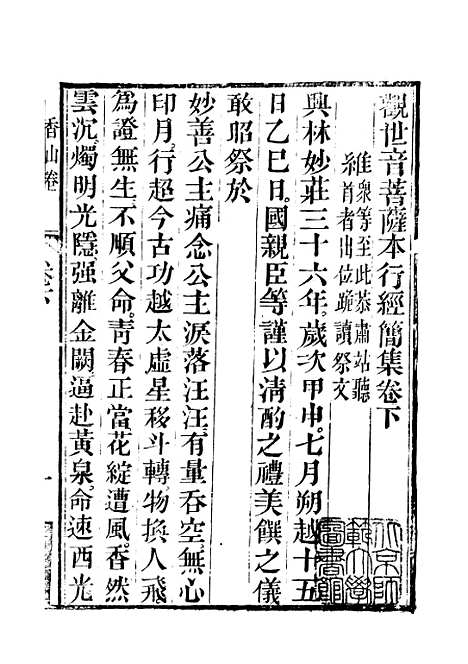 觀世音菩薩本行經簡集卷下
維衆等至此恭肅站聽
首者出位跪讀祭文
興林妙莊三十六年。歲次甲申。七月朔越十五
日乙巳日。國親臣等謹以清酌之禮美饌之儀
敢昭祭於
妙善公主痛念公主淚落汪汪。有量吞空。無心
印月。行超今古功越太虛星移斗轉。物換人飛
爲證無生。不順父命。青春正當。花綻遭風。香然
雲沉。燭明光隱。强離金闕。逼赴黃泉。命速西光
香山卷
卷下
一
北京師
範大學
圖書館